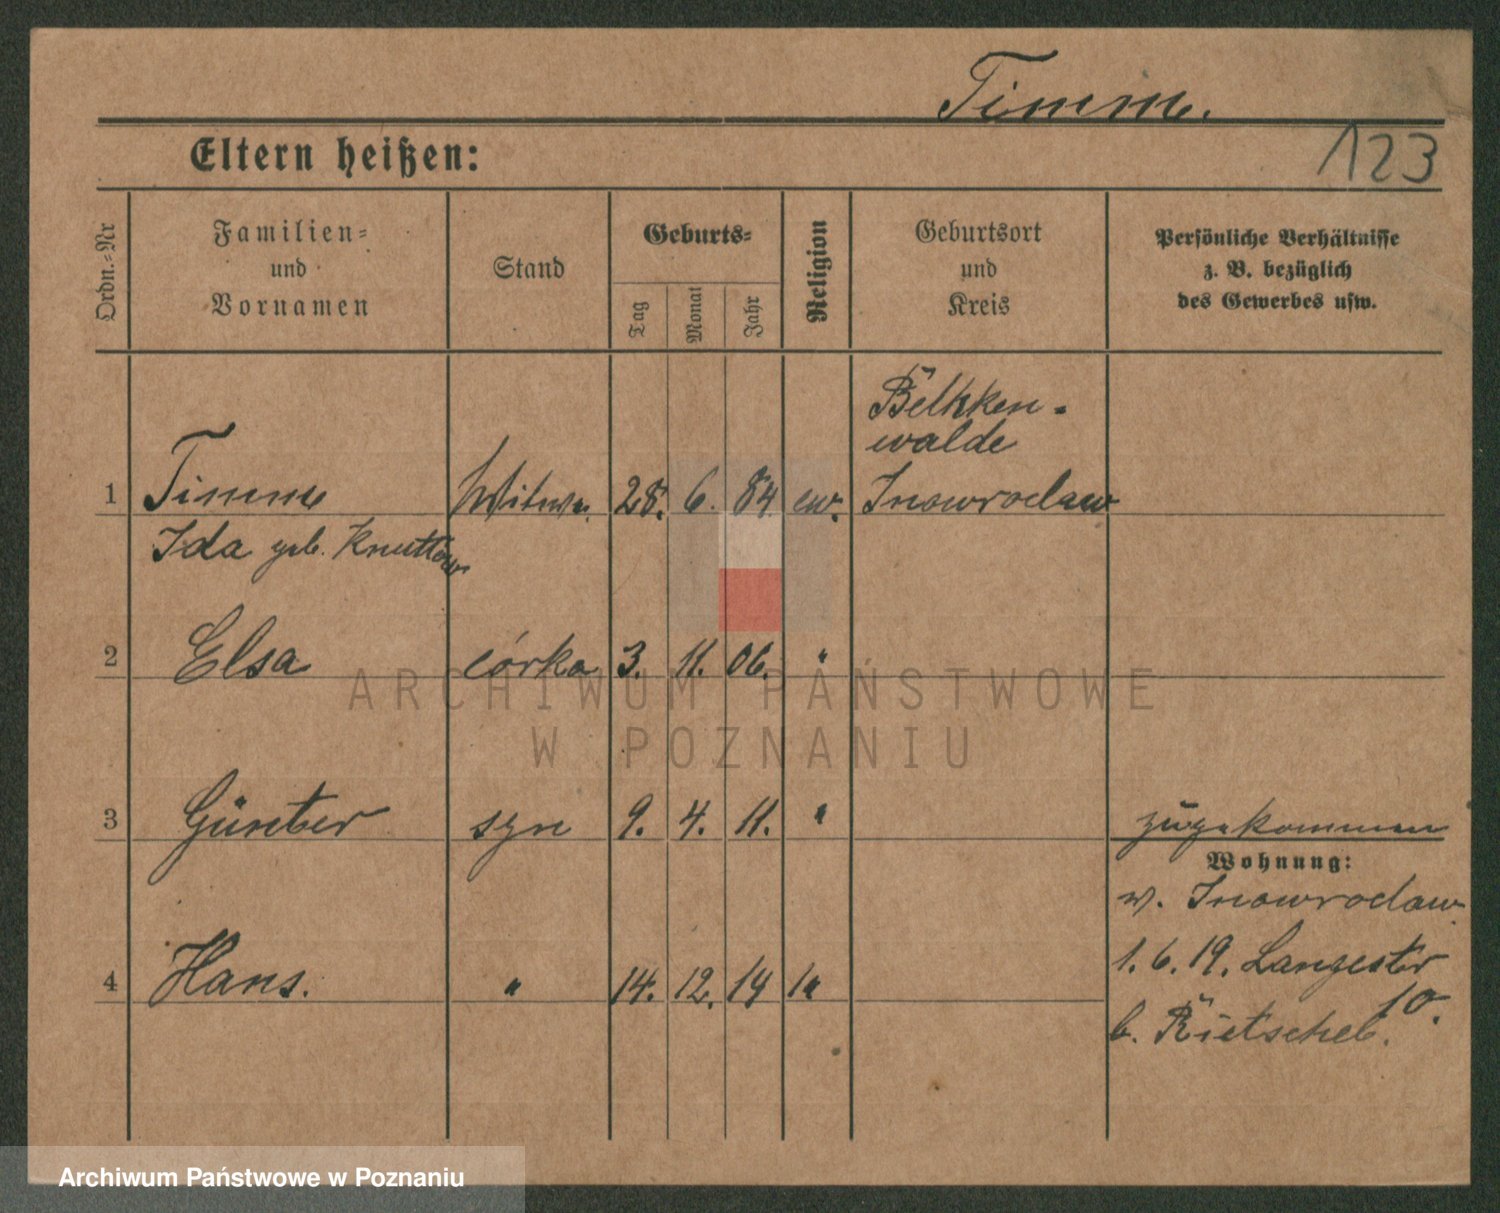 Timm.
Eltern heißen:
123
Ordn.=Nr
Familien=
und
Vornamen
Stand
Geburts=
Tag
Monat
Jahr
Religion
Geburtsort
und
Kreis
Persönliche Verhältnisse
z. B. bezüglich
des Gewerbes usw.
walde
1 Timm Witwe. 28. 6. 84 ev. Inowroclaw
Ida geb.
2 Elsa córka 3. 11. 06. "
3 Günter syn 9. 4. 11. " zugekommen
Wohnung:
v. Inowroclaw
4 Hans. " 14. 12. 14 "
1. 6. 19. Langestr
10.
b.
ARCHIWUM PAŃSTWOWE
W POZNANIU
Archiwum Państwowe w Poznaniu